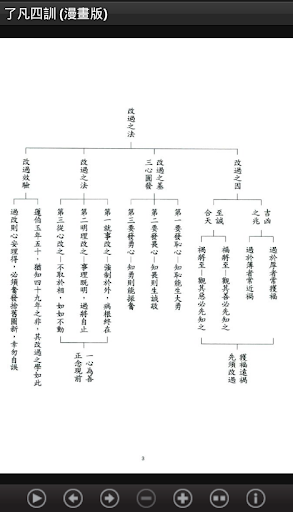 了凡四訓 (漫畫版)
改過之法
改過之因
吉凶
之兆
過於厚者常獲福
過於薄者常近禍
至誠
合天
福將至—觀其善必先知之
禍將至—觀其惡必先知之
獲福遠禍
先須改過
改過之基
三心圓發
第一要發恥心—知恥能生大勇
第二要發畏心—知畏則生誠敬
第三要發勇心—知勇則能振奮
改過之法
第一就事改之—強制於外，病根終在
第二明理改之—事理既明，過將自止
第三從心改之—不取於相，如如不動
一心為善
正念現前
改過效驗
蘧伯玉年五十，猶知四十九年之非，其改過之學如此
過改則心安理得，必須奮發捨舊圖新，幸勿自誤
3